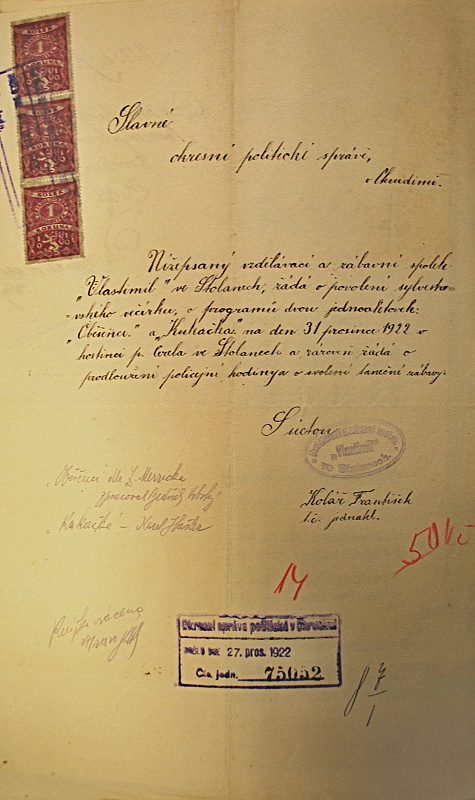 KOLEK
1
KORUNA
KOLEK
1
KORUNA
KOLEK
1
KORUNA
Slavné
okresní politické správě,
v Chrudimi.
Nížepsaný vzdělávací a zábavní spolek
"Vlastimil" ve Stolanech, žádá o povolení sylvestro-
vského večírku, o programu dvou jednoaktovek:
"Oběšenec" a "Kukačka" na den 31 prosince 1922 v
hostinci p. ve Stolanech a zároveň žádá o
prodloužení policejní hodiny a svolení taneční zábavy.
S úctou
"Vlastimil"
ve Stolanech.
Kolář František
t.č. jednatel.
Oběšenec dle
zpracoval
"Kukačka" – Karel Hašler
50 Kč
14
vráceno
Okresní správa politická v Chrudimi
DOŠLO DNE 27. pros. 1922
Čís. jedn. 75052
7
1